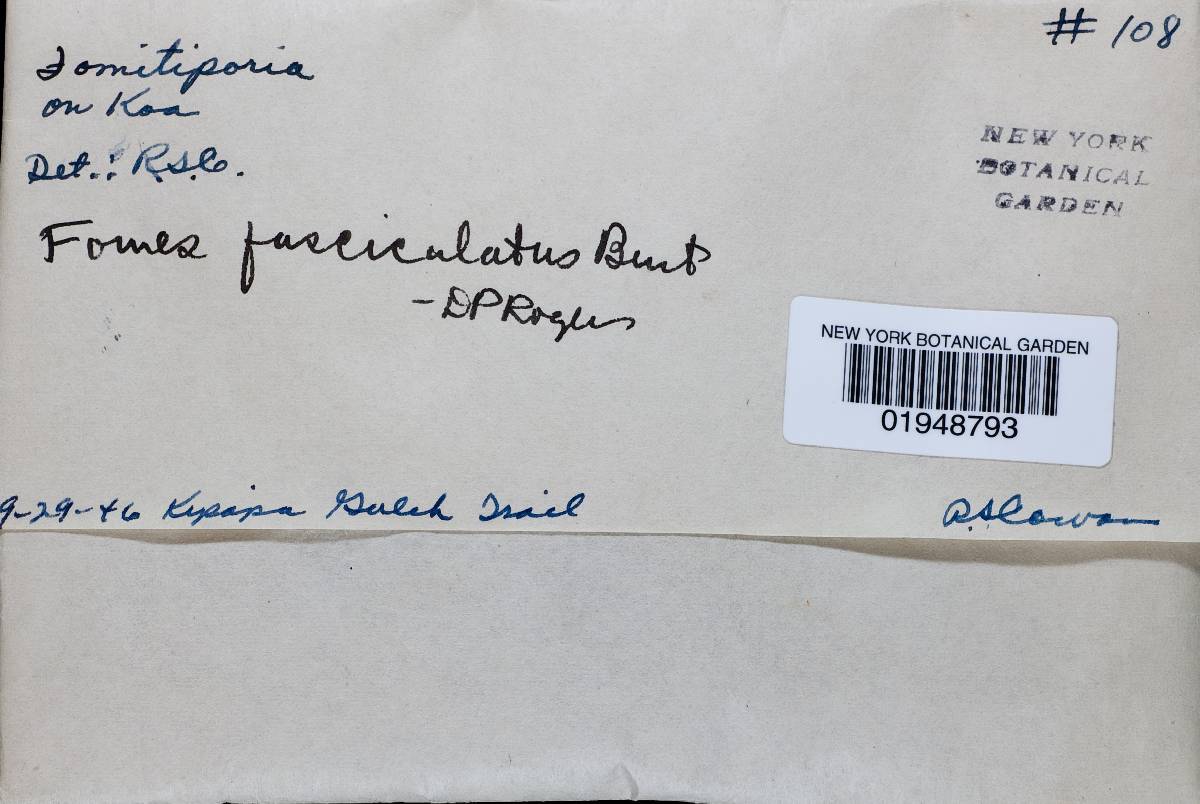 # 108
Fomitiporia
on Koa
Det.: R.S.C.
NEW YORK
BOTANICAL
GARDEN
Fomes fasciculatus Burt
- DP Rogers
NEW YORK BOTANICAL GARDEN
01948793
9-29-46 Kipapa Gulch Trail
R.S. Cowan